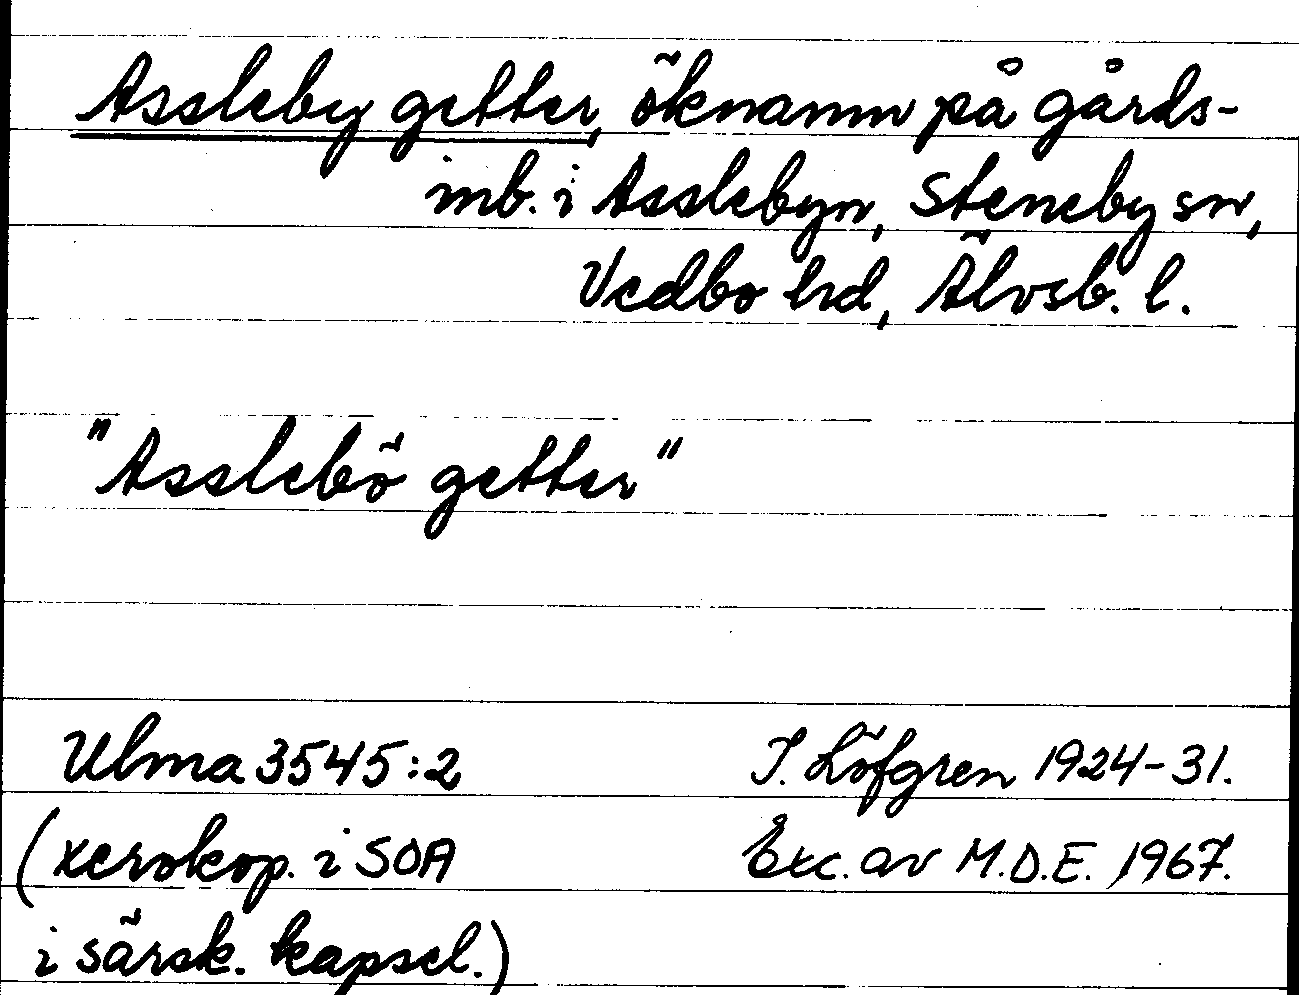 Assleby getter, öknamn på gårds-
inb. i Asslebyn, Steneby sn,
Vedbo hd, Älvsb. l.
"Asslebö getter"
Ulma 3545:2
I. Löfgren 1924-31.
(xerokop. i SOA
Exc. av M.D.E. 1967.
i särsk. kapsel.)